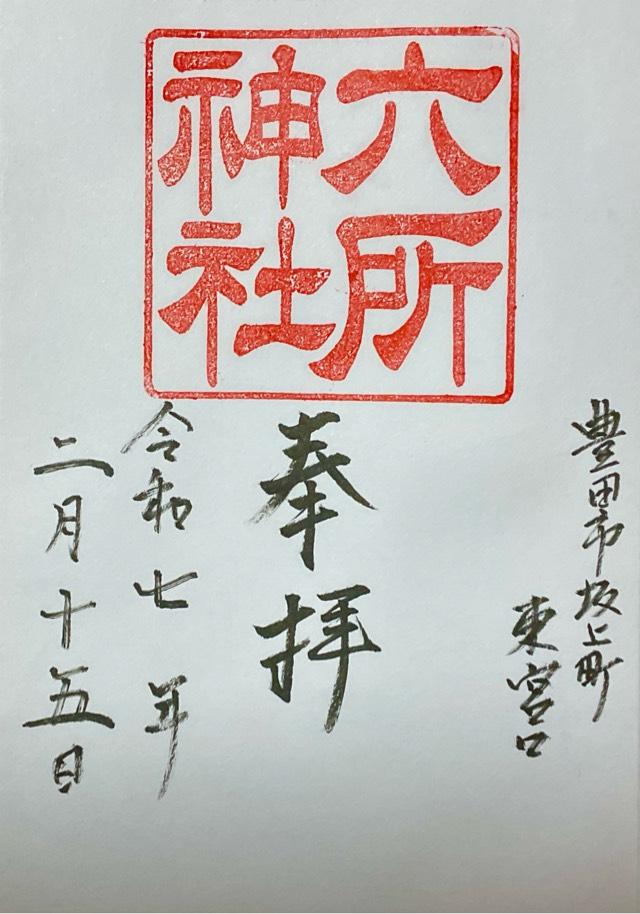 六所
神社
豊田市坂上町
東宮口
奉拝
令和七年
二月十五日